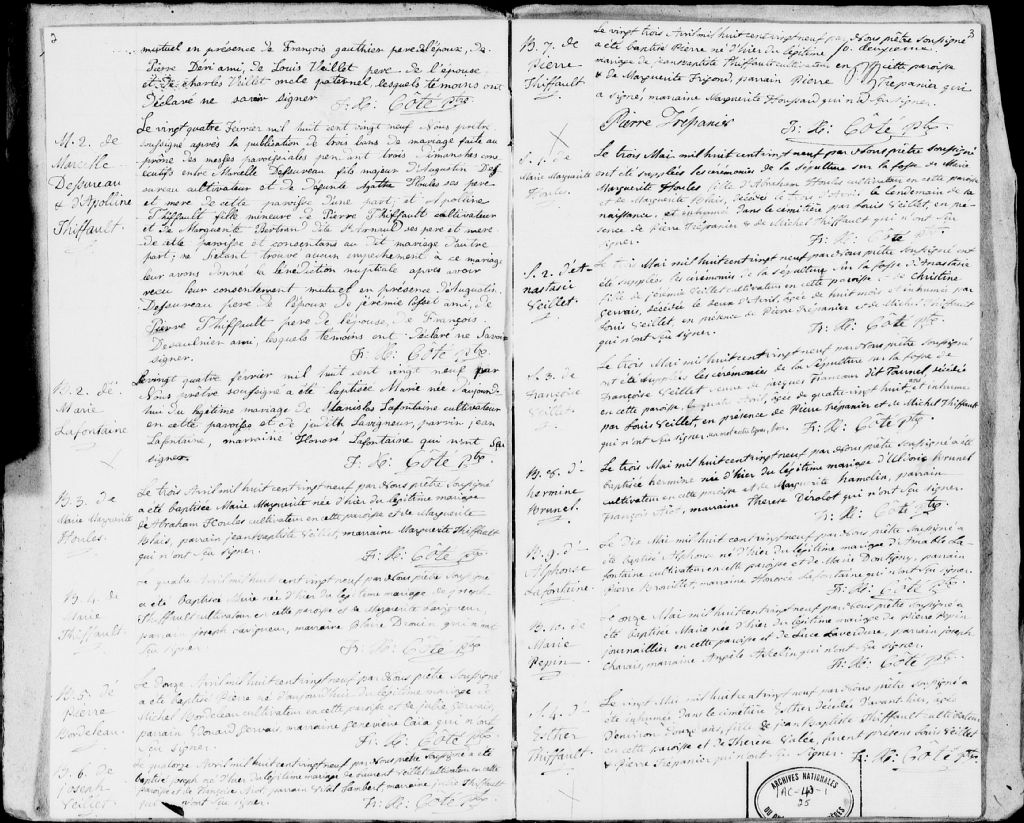 2
mutuel en présence de François gauthier pere de l'époux, de
Pierre Déri ami, de Louis Veillet pere de l'épouse
et de Charles Veillet oncle paternel, lesquels témoins ont
Déclaré ne savoir signer
Fr: X: Côté Ptre
M. 2. de
Marcelle
Desureau
& d'Apolline
Thiffault.
Le vingt quatre Fevrier mil huit cent vingt neuf Nous prêtre
soussigné après la publication de trois bans de mariage faite au
prône des messes paroissiales pendant trois dimanches cons
écutifs entre Marcelle Desureau fils majeur D'Augustin De
sureau cultivateur et de Défunte Agathe Houles ses pere
et mere de cette paroisse d'une part; et Apolline
Thiffault fille mineure de Pierre Thiffault cultivateur
et de Marguerite Bertrand dite St Arnaud ses pere et mere
de cette paroisse et consentans au dit mariage d'autre
part; ne s'étant trouvé aucun empêchement à ce mariage
leur avons donné la bénédiction nuptiale après avoir
recu leur consentement mutuel en présence d'Augustin
Desureau pere de l'époux de jérémie Cosset ami, de
Pierre Thiffault pere de l'épouse, de François
Desaulnier ami, lesquels témoins ont Déclaré ne Savoir
signer.
Fr: X: Côté Ptre
B. 2. de
Marie
Lafontaine
Le vingt quatre février mil huit cent vingt neuf par
Nous prêtre soussigné a été baptisée Marie née Aujourd
hui du légitime mariage de Stanislas Lafontaine cultivateur
en cette paroisse et de judith Lavigneur, parrin jean
Lafontaine, marraine Honoré Lafontaine qui n'ont Seu
signer.
Fr: X: Côté Ptre
B. 3. de
Marie Marguerite
Houles.
Le trois Avril mil huit cent vingt neuf par Nous prêtre Soussigné
a été baptisée Marie Marguerite née d'hier du légitime mariage
de Abraham Houles cultivateur en cette paroisse et de Marguerite
Blais, parrain jean Baptiste Veillet, marraine Marguerite Thiffault
qui n'ont Seu signer.
Fr: X: Côté Ptre
B. 4. de
Marie
Thiffault.
Le quatre Avril mil huit cent vingt neuf par Nous prêtre Soussigné
a été baptisée Marie née d'hier du légitime mariage de joseph
Thiffault cultivateur en cette paroisse et de Marguerite Lavigneur,
parrain joseph Lavigneur, marraine Claire Drouin qui n'ont
Seu signer.
Fr: X: Côté Ptre
B. 5. de
Pierre
Bordeleau.
Le Douze Avril mil huit cent vingt neuf par Nous prêtre Soussigné
a été baptisé Pierre né d'aujourd'hui du légitime mariage de
Michel Bordeleau cultivateur en cette paroisse et de julie Gervais,
parain Edouard Gervais, marraine geneviève Caia qui n'ont
Seu Signer.
Fr: X: Côté Ptre
B. 6. de
joseph
Veillet
Le quatorze Avril mil huit cent vingt neuf par Nous prêtre soussigné a été
baptisé joseph né d'hier du légitime mariage de Veillet cultivateur en cette
paroisse et de Françoise parrain Vital Lambert, marraine julie Thiffault
qui n'ont Seu signer.
Fr: X: Côté Ptre
3
B. 7. de
Pierre
Thiffault.
Le vingt trois Avril mil huit cent vingt neuf par Nous prêtre soussigné
a été baptisé Pierre né d'hier du légitime
mariage de jean Baptiste Thiffault cultivateur en cette paroisse
& de Marguerite Frigond, parrain Pierre Trépanier qui
a signé, marraine Marguerite Houssard qui n'a Su signer.
Pierre Trepanier
Fr: X: Côté Ptre
S. 1. de
Marie Marguerite
Houles.
Le trois Mai mil huit cent vingt neuf par Nous prêtre Soussigné
ont été supplées les cérémonies de la Sépulture sur la fosse de Marie
Marguerite Houles fille d'Abraham Houles cultivateur en cette paroisse
et de Marguerite Blais, décédée le Avril, le lendemain de sa
naissance, et inhumée dans le cimetière par Louis Veillet, en pré
sence de Pierre Trépanier & de Michel Thiffault qui n'ont Su
signer.
Fr: X: Côté Ptre
S. 2. d'A-
nastasie
Veillet.
Le trois Mai mil huit cent vingt neuf par Nous prêtre Soussigné ont
été supplées les ceremonies de la sépulture sur la fosse d'Anastasie
fille de jérémie Veillet cultivateur en cette paroisse & de Christine
gervais, décédée le deux d'Avril, âgée de huit mois et inhumée par
Louis Veillet, en présence de Pierre Trépanier et de Michel Thiffault
qui n'ont Su signer.
Fr: X: Côté Ptre
S. 3. de
Françoise
Veillet.
Le trois Mai mil huit cent vingt neuf par Nous prêtre Soussigné
ont été supplées les ceremonies de la Sépulture sur la fosse de
Françoise Veillet veuve de jacques dit Tournet décédée
en cette paroisse le quatre Avril, âgée de quatre-vingt huit ans et inhumée
par Louis Veillet, en présence de Pierre Trépanier et de Michel Thiffault
qui n'ont Su signer.
Fr: X: Côté Ptre
B. 8. d'
hermine
Brunel.
Le trois Mai mil huit cent vingt neuf par Nous prêtre Soussigné a été
baptisée hermine née d'hier du légitime mariage d'Uldoric brunel
cultivateur en cette paroisse et de Marguerite hamelin, parrain
François marraine Therese Vérolot qui n'ont Su signer.
Fr: X: Côté Ptre
B. 9. d'
Alphonse
Lafontaine.
Le dix Mai mil huit cent vingt neuf par Nous prêtre Soussigné a
été baptisé Alphonse né d'hier du légitime mariage d'Amable La
fontaine cultivateur en cette paroisse et de Marie Dontigny, parrain
Pierre Brouillet, marraine Honorée Lafontaine qui n'ont Su signer.
Fr: X: Côté Ptre
B. 10. de
Marie
Pepin.
Le onze Mai mil huit cent vingt neuf par Nous prêtre Soussigné a
été baptisée Marie née d'hier du légitime mariage de Pierre Pepin
journaillier en cette paroisse et de Luce Laverdure, parrain joseph
Charais, marraine Angèle Asselin qui n'ont Su signer.
Fr: X: Côté Ptre
S. 4. d'
Esther
Thiffault.
Le vingt Mai mil huit cent vingt neuf par Nous prêtre Soussigné a
été inhumée dans le cimetière Esther décédée d'avant hier, agée
D'environ Douze ans, fille de jean Baptiste Thiffault cultivateur
en cette paroisse et de Therèse Vallée, furent présens Louis Veillet
& Pierre Trépanier qui n'ont Su Signer.
Fr: X: Côté Ptre
ARCHIVES NATIONALES
AC-43-1
25